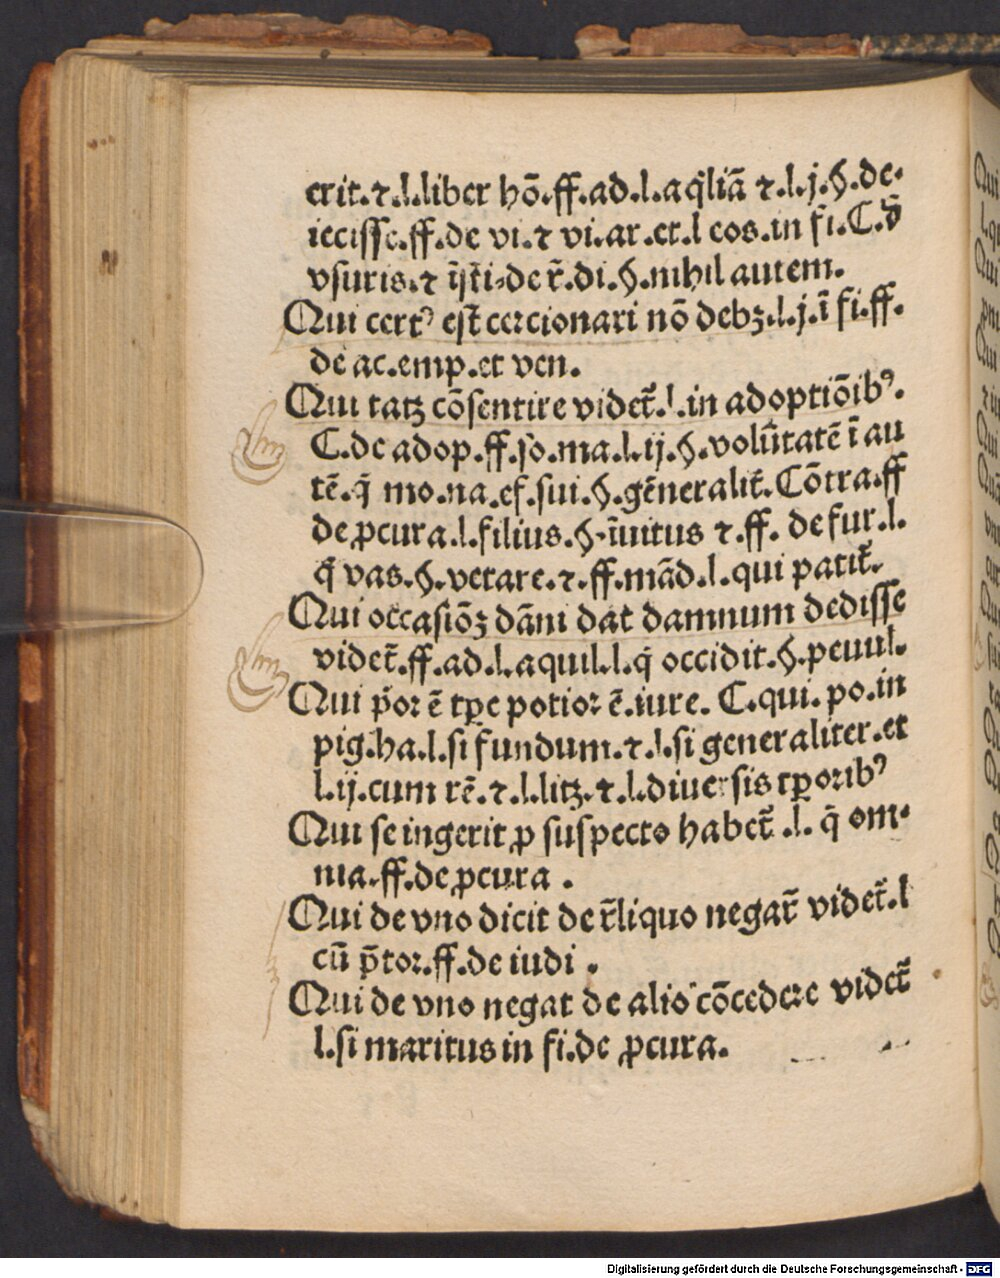 erit.⁊.l.liber hō.ff.ad.l.aq̄liā ⁊.l.j.§.de-
iecisse.ff.de vi.⁊ vi.ar.et.l eos.in fi.C.d̄
vsuris.⁊ īsti.de r̄.di.§.nihil autem.
Qui certꝰ est cercionari nō debꝫ.l.j.ī fi.ff.
de ac.emp.et ven.
Qui tatꝫ cōsentire videt̄.l.in adoptiōibꝰ.
C.de adop.ff.so.ma.l.ij.§.volūtatē ī au
tē.q̄ mo.na.ef.sui.§.gēneralit̄.Cōtra.ff
de ꝓcura.l.filius.§.īuitus ⁊.ff. de fur.l.
q̄ vas.§.vetare.⁊.ff.mād.l.qui patit̄.
Qui occasiōꝫ dāni dat damnum dedisse
videt̄.ff.ad.l.aquil.l.q̄ occidit.§.penul.
Qui p̄or ē tꝑe potior ē.iure. C.qui.po.in
pig.ha.l.si fundum.⁊.l.si generaliter.et
l.ij.cum rē.⁊.l.litꝫ.⁊.l.diuersis tꝑoribꝰ
Qui se ingerit ꝓ suspecto habet̄ .l. q̄ om-
nia.ff.de ꝓcura .
Qui de vno dicit de r̄liquo negar̄ videt̄.l
cū p̄tor.ff.de iudi .
Qui de vno negat de alio cōcedere videt̄
l.si maritus in fi.de ꝓcura.
Digitalisierung gefördert durch die Deutsche Forschungsgemeinschaft - DFG